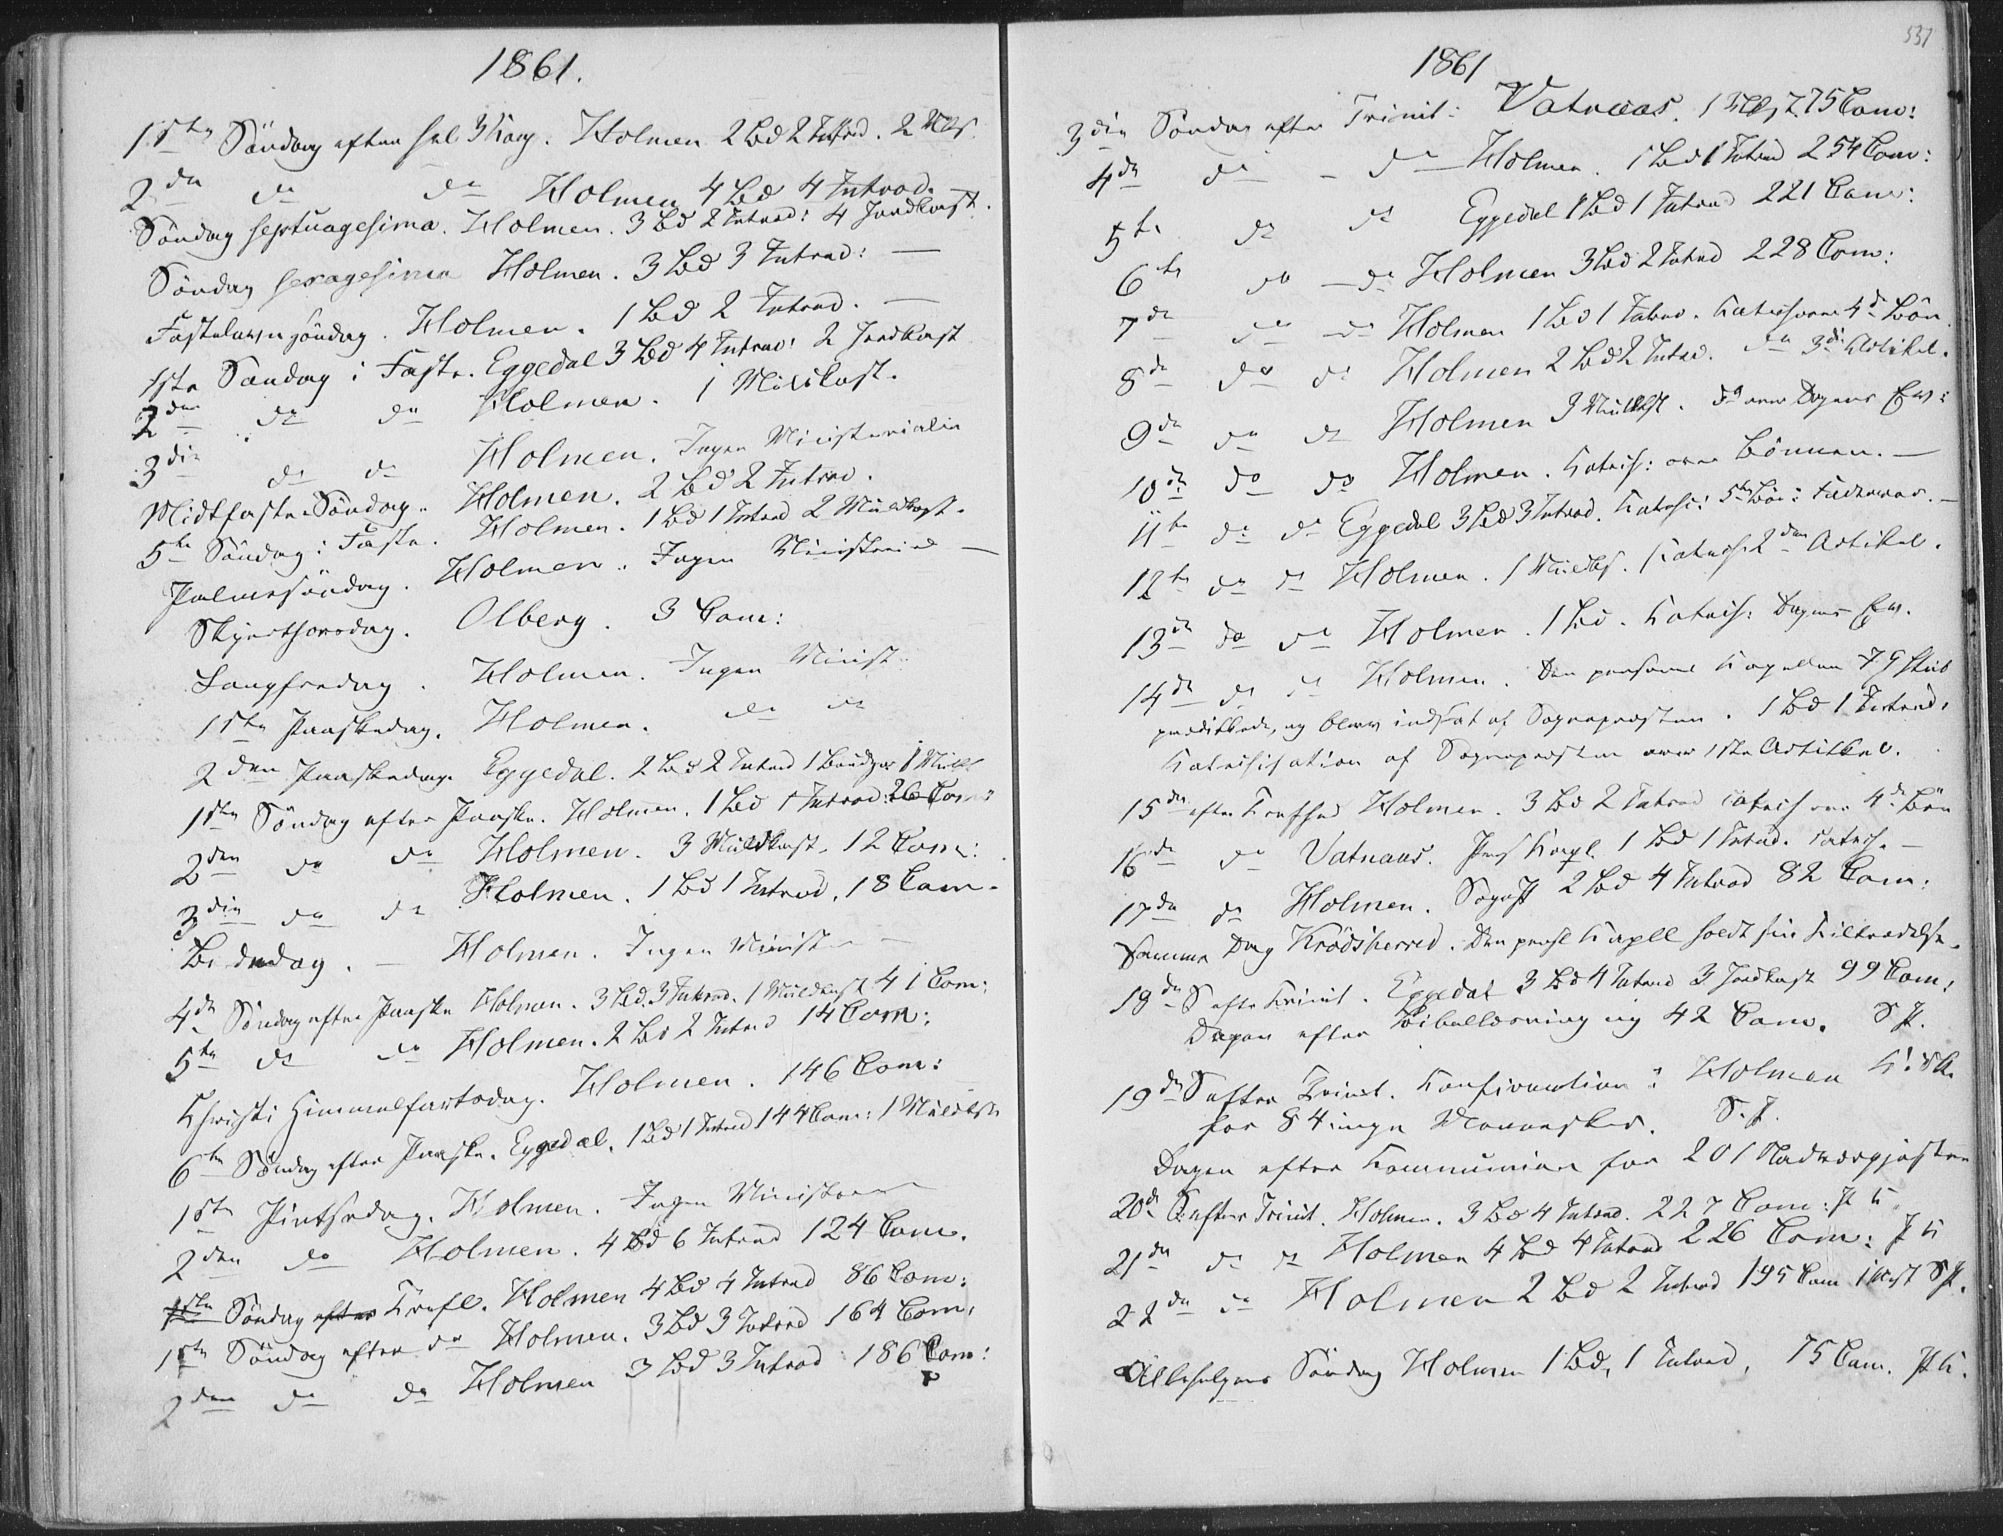 1861.
1ste Söndag efter hel 3 Kong. Holmen 2 Bd 2 Introd. 2
2den do do Holmen 4 Bd 4 Introd.
Söndag septuagesima. Holmen. 3 Bd 2 Introd: 4 Jordkast.
Söndag sexagesima Holmen. 3 Bd 3 Introd: —
Fastelavns söndag. Holmen. 1 Bd 2 Introd. —
1ste Söndag i Faste. Eggedal 3 Bd 4 Introd: 2 Jordkast
2den do do Holmen. 1 Muldkast.
3die do do Holmen. Ingen Ministerialia
Midtfaste Söndag. Holmen. 2 Bd 2 Introd.
5te Söndag i Faste. Holmen. 1 Bd 1 Introd 2 Muldkast.
Palmesöndag. Holmen. Ingen Ministerial —
Skjærthorsdag. Olberg. 3 Com:
Langfredag. Holmen. Ingen Minist.
1ste Paaskedag. Holmen. do do
2den Paaskedag. Eggedal. 2 Bd 2 Introd 1 1 Muldk
1ste Söndag efter Paaske. Holmen. 1 Bd 1 Introd: 26 Com:
2den do do Holmen. 3 Muldkast. 12 Com:
3die do do Holmen. 1 Bd 1 Introd. 18 Com.
Bededag. — Holmen. Ingen Minist —
4de Söndag efter Paaske Holmen. 3 Bd. 3 Introd. 1 Muldkast 41 Com:
5te do do Holmen. 2 Bd 2 Introd 14 Com:
Christi Himmelfartsdag. Holmen. 146 Com:
6te Söndag efter Paaske. Eggedal. 1 Bd 1 Introd 144 Com: 1 Muldkst
1ste Pintsedag. Holmen. Ingen Minister
2den do Holmen. 4 Bd 6 Introd 124 Com.
1ste Söndag efter Trefl. Holmen 4 Bd 4 Introd 86 Com:
1ste Söndag efter do Holmen. 3 Bd 3 Introd 164 Com:
2den do do Holmen 3 Bd 3 Introd 186 Com:
531
1861
3die Söndag efter Trinit: Vatnaas. 275 Com:
4de do – do – Holmen. 1 Bd 1 Introd 254 Com:
5te do do Eggedal 1 Bd 1 Introd 221 Com:
6te do – do Holmen 3 Bd 2 Introd 228 Com:
7de do do Holmen 1 Bd 1 Introd. Katechis over 4de Bön.
8de do do Holmen 2 Bd 2 Introd. do 3die Artikel.
9de do do Holmen 3 Muldkst. do over Dagens Ev:
10de do do Holmen. Katech: over Bönnen. —
11te do do Eggedal 3 Bd 3 Introd. Katech: 5te Bön i Fadervor. —
12te do do Holmen. 1 Muldks. Katech: 2den Artikel.
13de do do Holmen. 1 Bd. Katech: Dagens Ev.
14de do do Holmen. Den personel Kapellan
prædikede, og blev indsat af Sognepresten. 1 Bd 1 Introd.
Katechisation af Sognepresten over 1ste Artikel.
15de efter Trefhed Holmen. 3 Bd 2 Introd catech over 4de Bön
16de do Vatnaas. Pers Kapl. 1 Bd 1 Introd. catech. —
17de do Holmen. Sogpst 2 Bd 4 Introd 82 Com:
Samme Dag Krödsherred. Den persl Kapell holdt sin Tiltrædelse.
18de S efter Trinit. Eggedal 3 Bd 4 Introd 3 Jordkast 99 Com:
Dagen efter Bibellæsning og 42 Com. S P.
19de S efter Trinit. Confirmation i Holmen
for 84 unge Mennesker. S. P.
Dagen efter Kommunion for 201 Nadvergjester
20de S. efter Trinit. Holmen. 3 Bd 4 Introd. 227 Com: P K.
21de do do Holmen 4 Bd 4 Introd 226 Com: P K
22de do Holmen 2 Bd 2 Introd 195 Com S P.
Allehelgens Söndag Holmen 1 Bd. 1 Introd. 75 Com. P K.